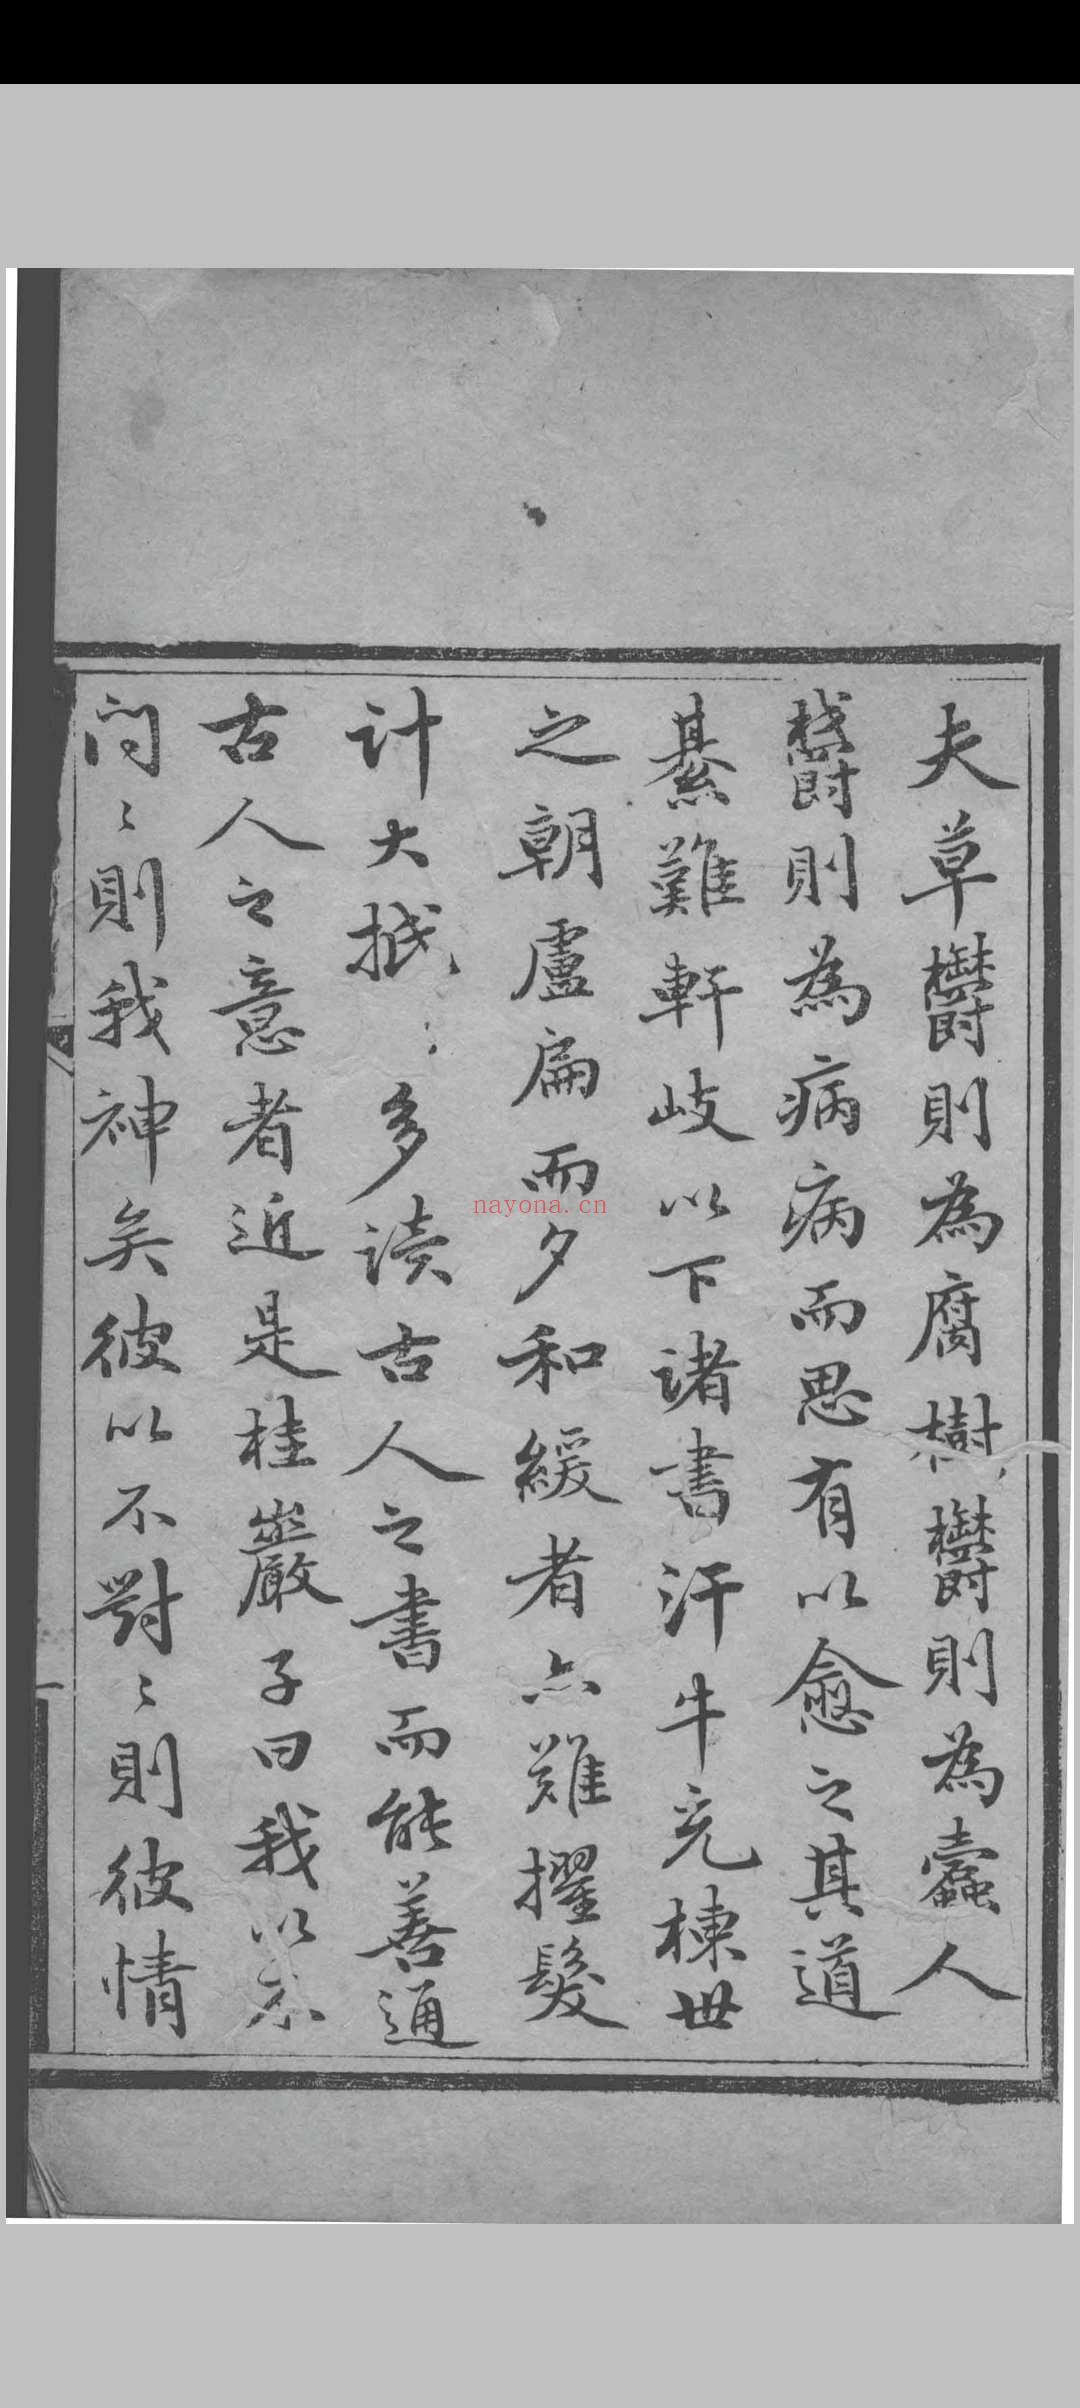 夫草鬱則為腐樹鬱則為蠹人
鬱則為病病而思有以愈之其道
綦難軒岐以下諸書汗牛充棟世
之朝盧扁而夕和緩者亦難擢髮
計大抵多读古人之書而能善通
古人之意者近是桂巖子曰我以不
问〻則我神矣彼以不對〻則彼情
nayona.cn